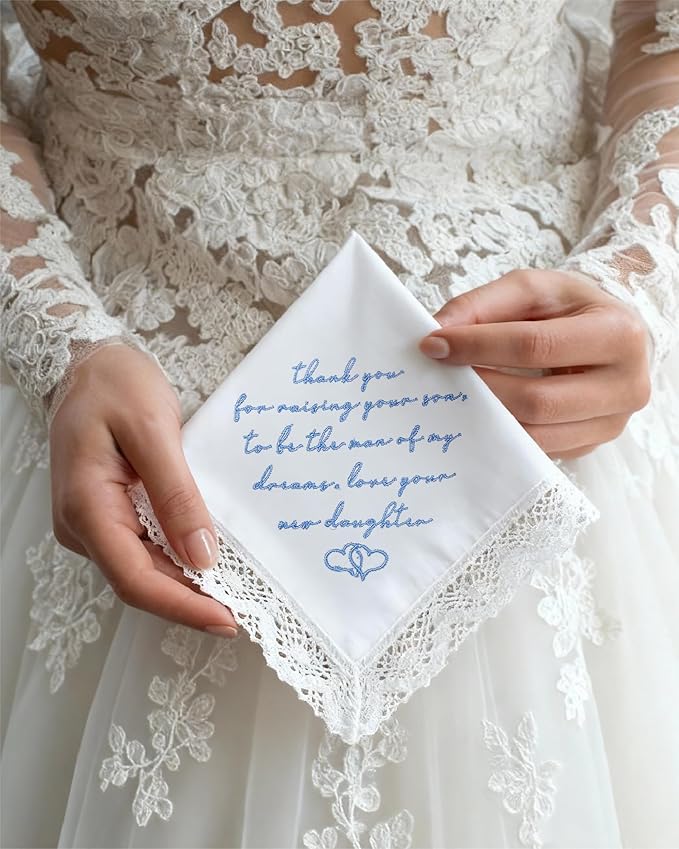 thank you
for raising your son,
to be the man of my
dreams. love your
new daughter